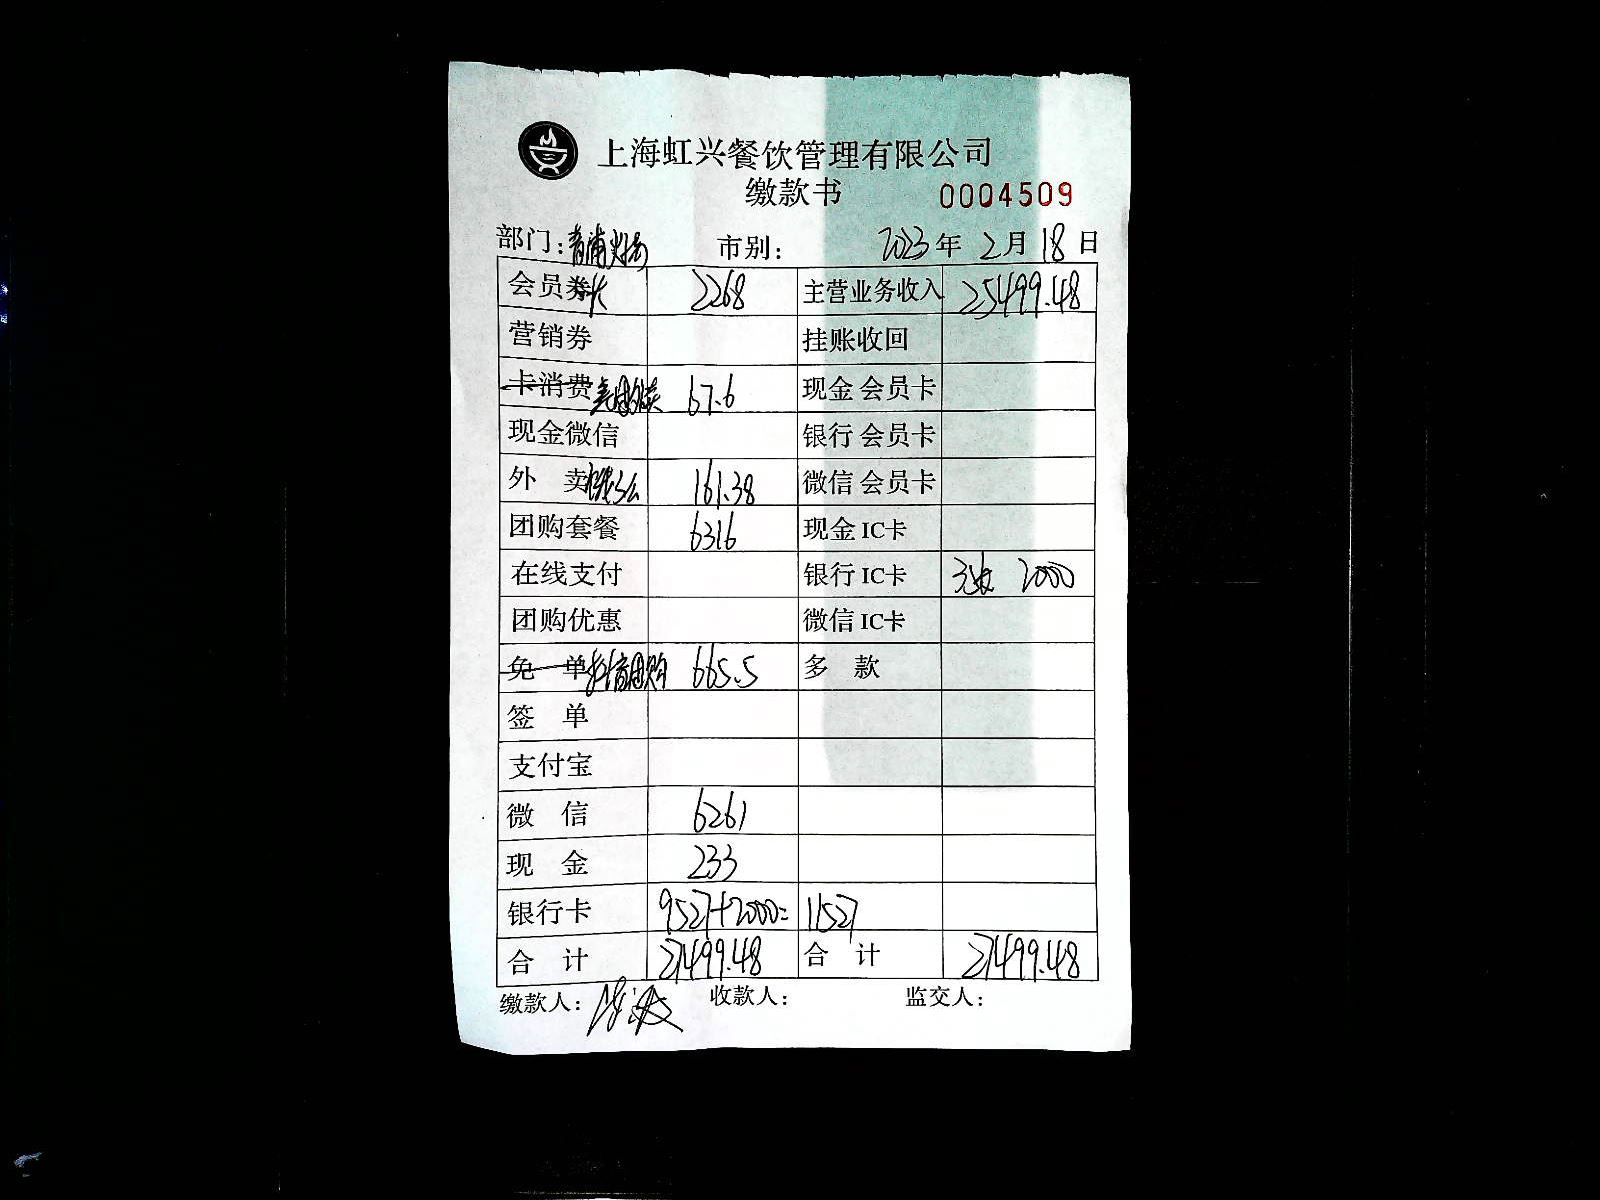 上海虹兴餐饮管理有限公司
缴款书 0004509
部门：青浦 市别： 2023年 2月 18日
会员券卡 2268 主营业务收入 25499.48
营销券 挂账收回
卡消费 美团外卖 67.6 现金 会员卡
现金微信 银行 会员卡
外 卖 饿了么 161.38 微信 会员卡
团购套餐 6316 现金 IC卡
在线支付 银行 IC卡 2000
团购优惠 微信 IC卡
免 单 抖音团购 665.5 多 款
签 单
支付宝
微 信 6261
现 金 233
银行卡 9527+2000= 11527
合 计 27499.48 合 计 27499.48
缴款人： 收款人： 监交人：